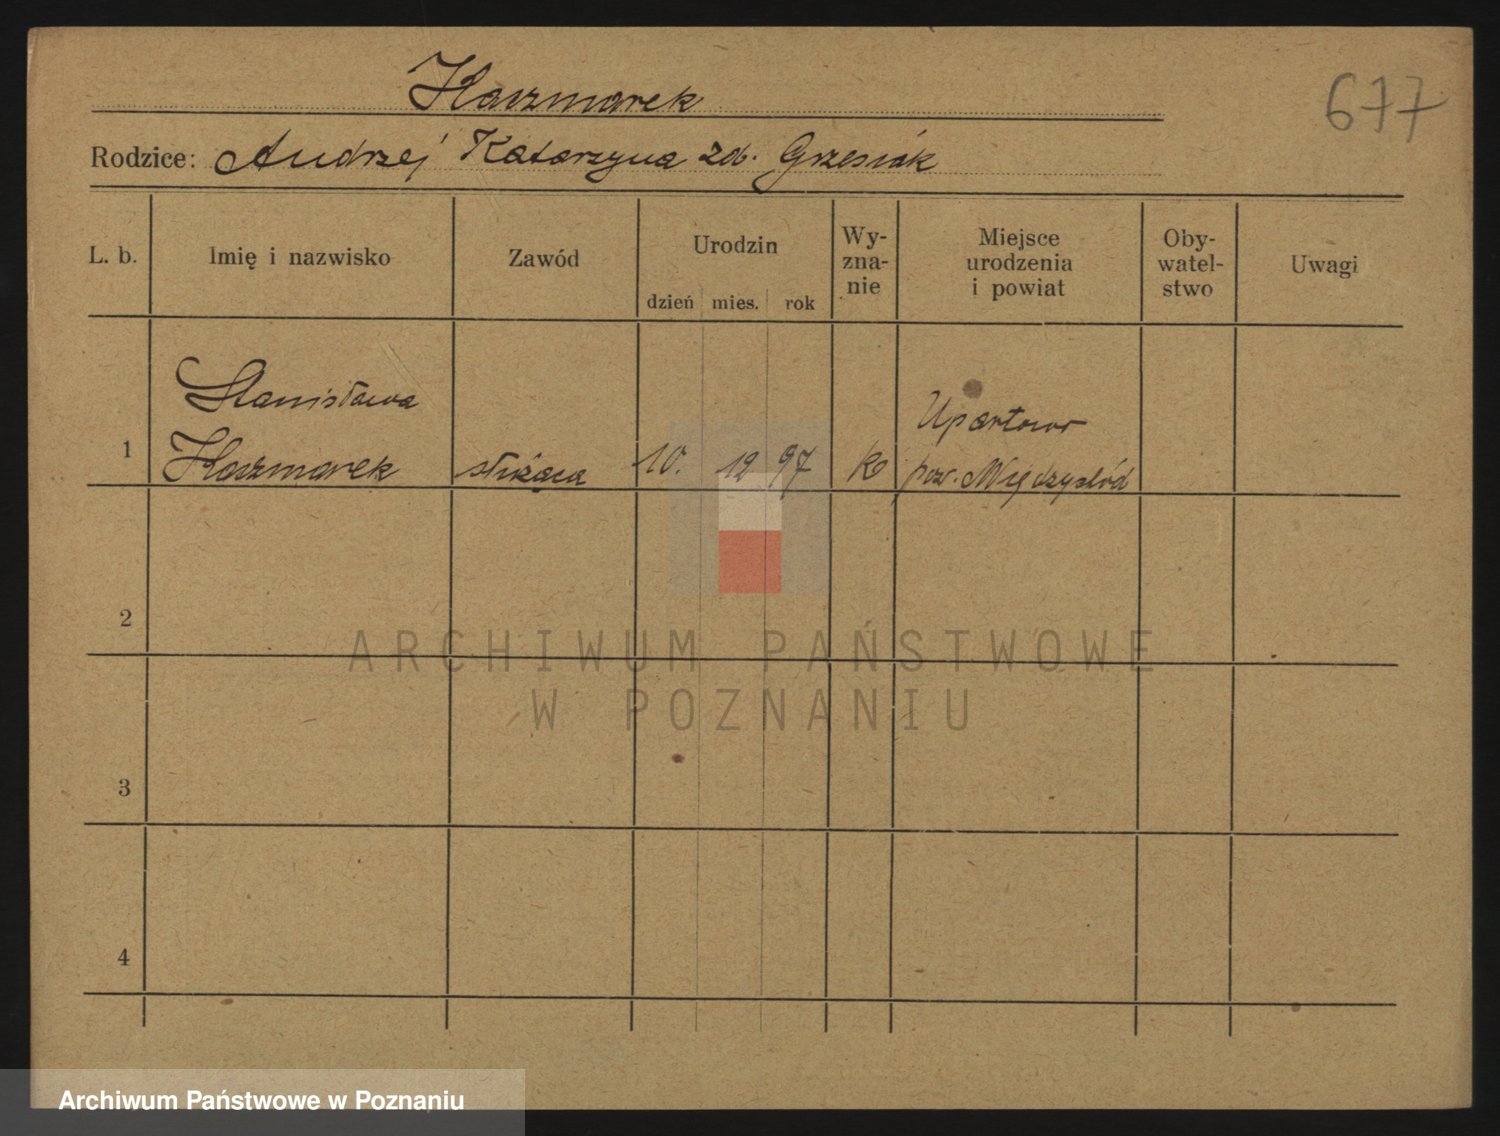 Kaczmarek
677
Rodzice: Andrzej Katarzyna zd. Grzesiak
L. b.
Imię i nazwisko
Zawód
Urodzin
dzień mies. rok
Wy-
zna-
nie
Miejsce
urodzenia
i powiat
Oby-
watel-
stwo
Uwagi
1
Stanisława
Kaczmarek
służąca
10. 12 97
k
Upartowo
pow. Międzychód
2
3
4
ARCHIWUM PAŃSTWOWE
W POZNANIU
Archiwum Państwowe w Poznaniu